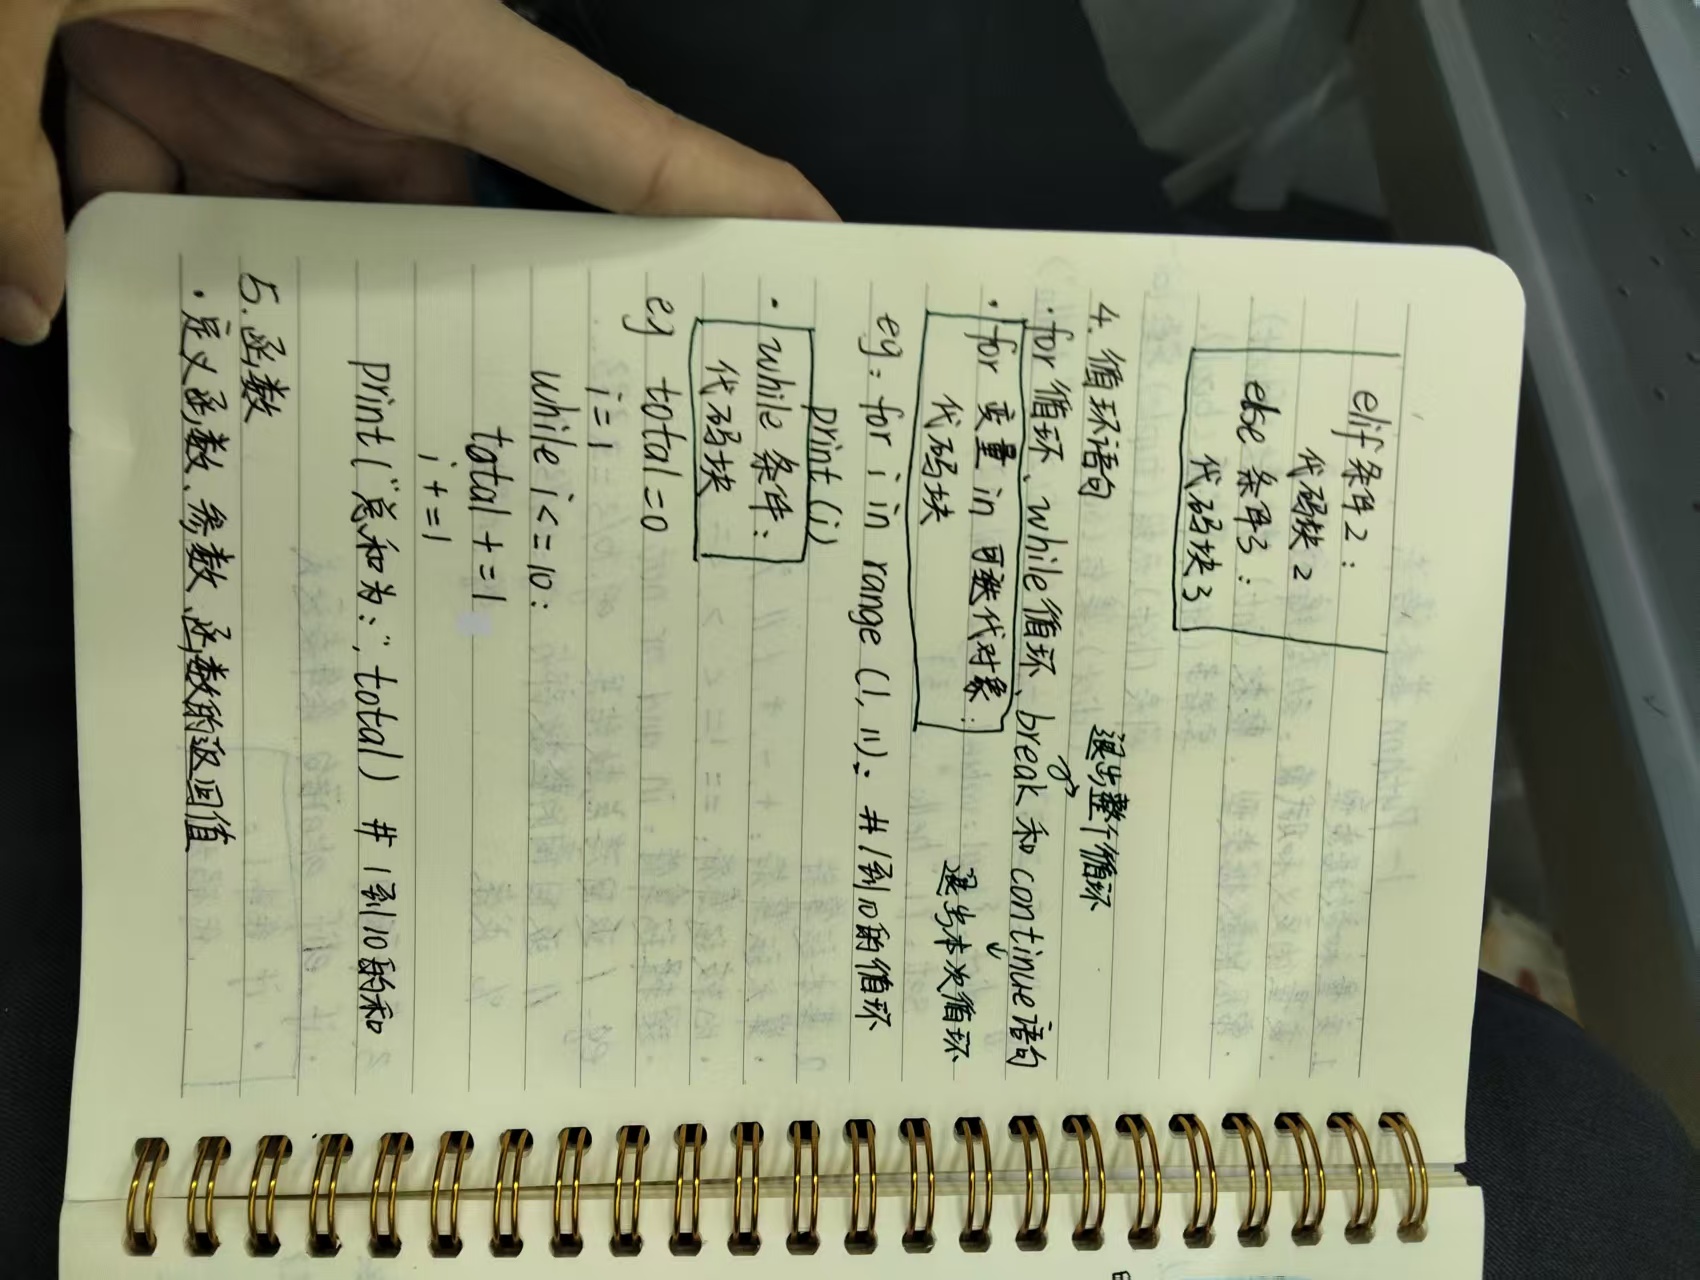 elif 条件2:
代码块2
else 条件3:
代码块3
4. 循环语句
退出整个循环
·for循环、while循环、break和continue语句
退出本次循环
· for 变量 in 可迭代对象:
代码块
eg: for i in range (1, 11): # 1到10的循环
print(i)
· while 条件:
代码块
eg total=0
i=1
while i<=10:
total +=1
i +=1
print("总和为:", total) # 1到10的和
5.函数
·定义函数、参数、函数的返回值